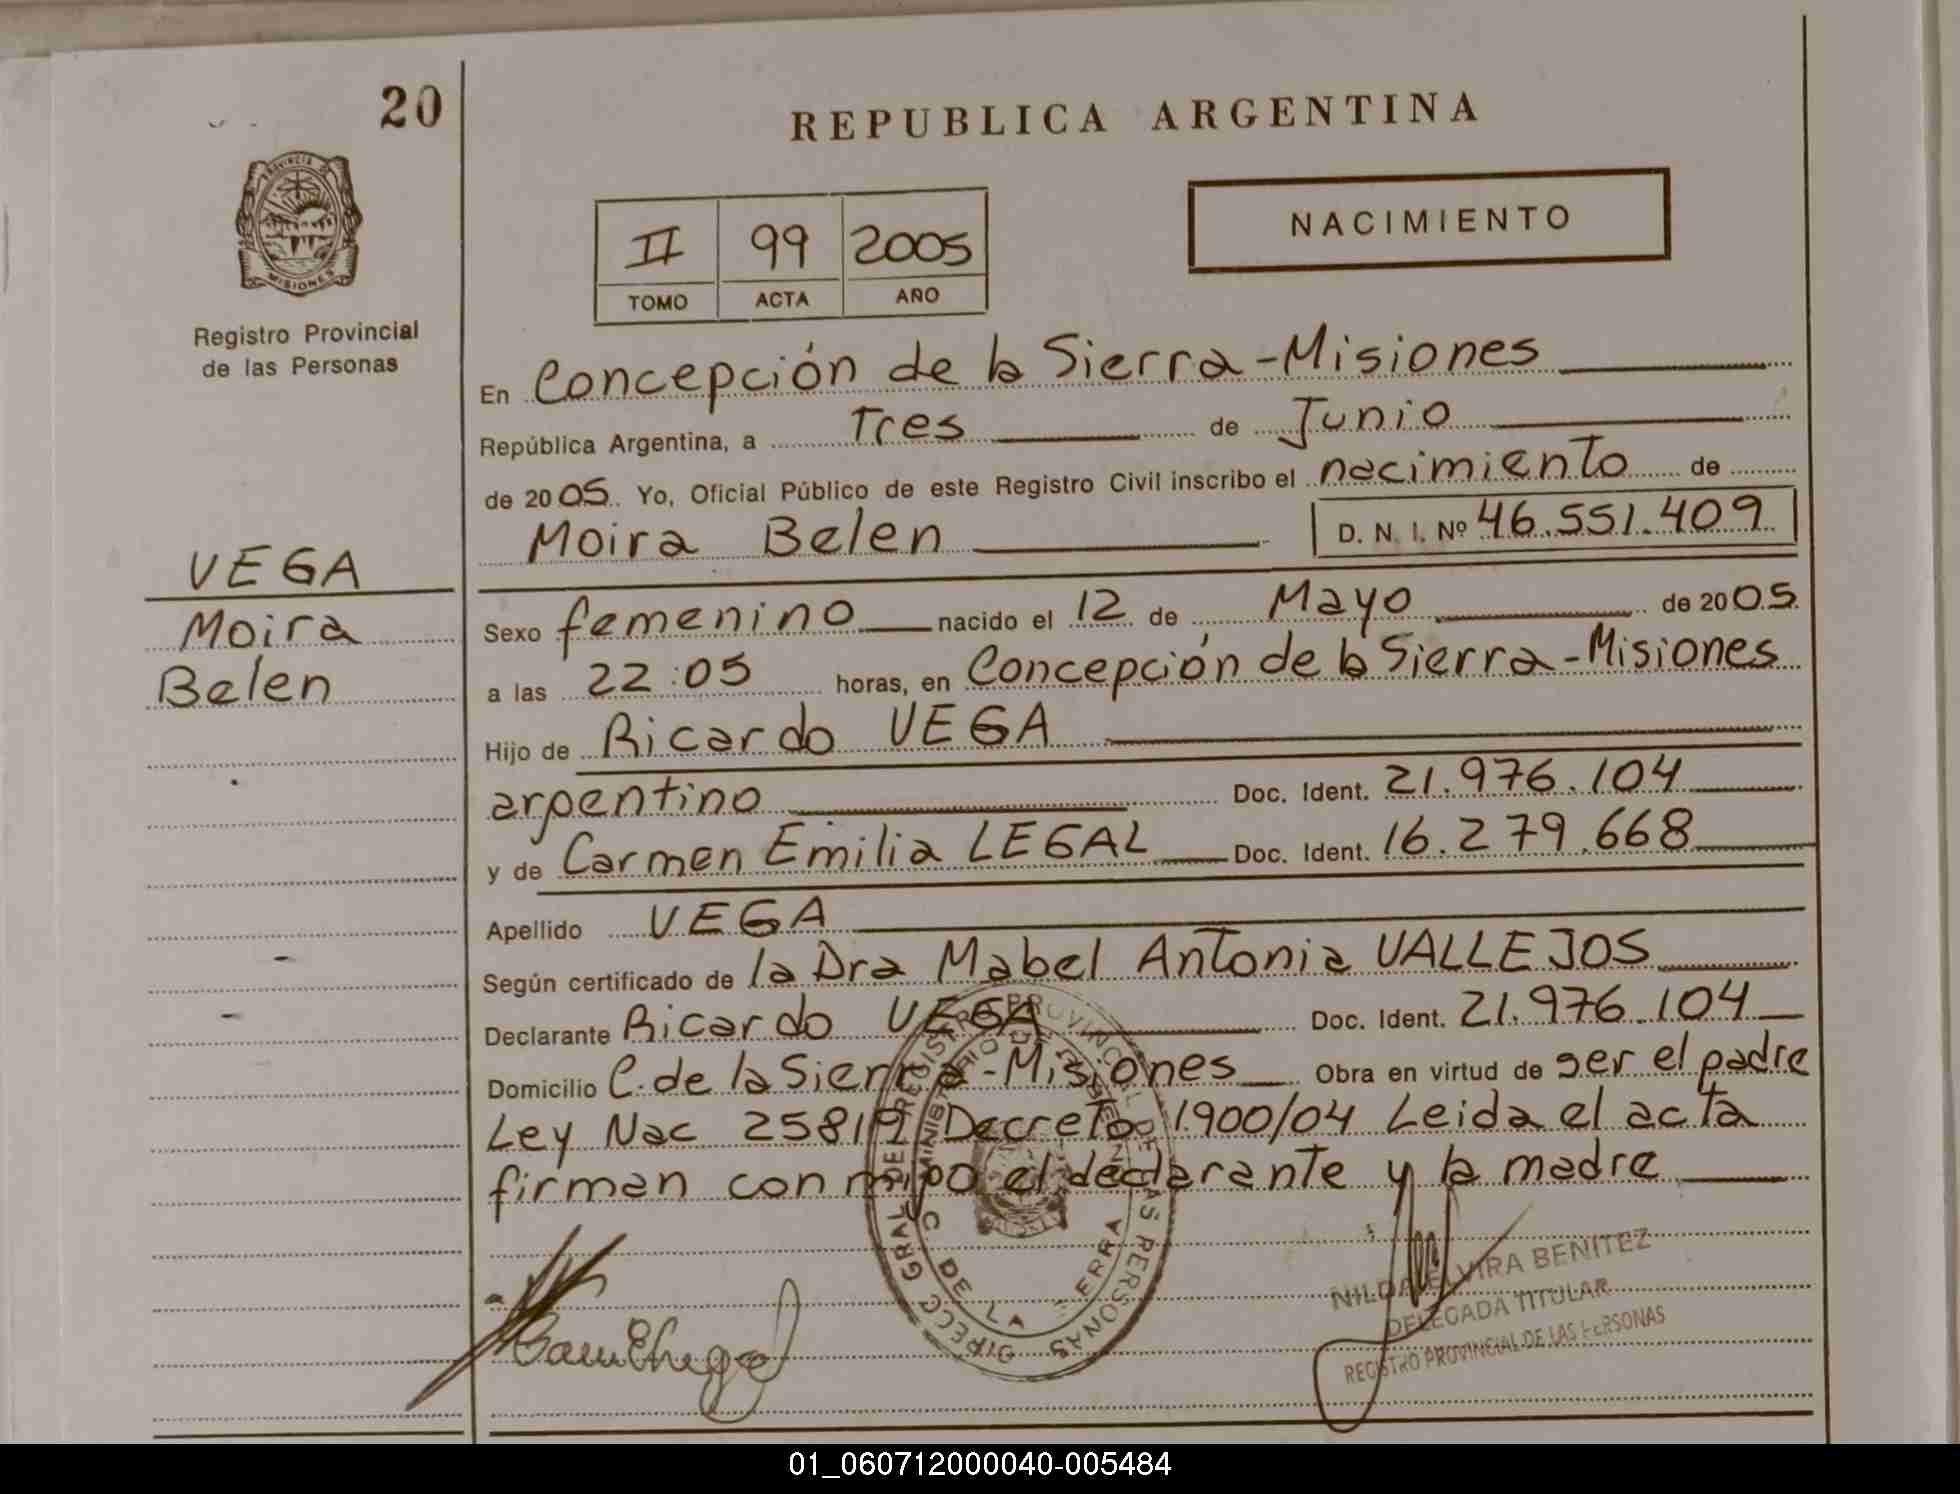 20
REPUBLICA ARGENTINA
PROVINCIA DE
MISIONES
Registro Provincial
de las Personas
II 99 2005
TOMO ACTA AÑO
NACIMIENTO
En Concepción de la Sierra-Misiones
República Argentina, a Tres de Junio
de 2005. Yo, Oficial Público de este Registro Civil inscribo el nacimiento de
Moira Belen D. N. I. Nº 46.551.409
VEGA
Moira
Belen
Sexo femenino nacido el 12 de Mayo de 2005.
a las 22:05 horas, en Concepción de la Sierra-Misiones
Hijo de Ricardo VEGA
argentino Doc. Ident. 21.976.104
y de Carmen Emilia LEGAL Doc. Ident. 16.279.668
Apellido VEGA
Según certificado de la Dra Mabel Antonia VALLEJOS
Declarante Ricardo VEGA Doc. Ident. 21.976.104
Domicilio C. de la Sierra-Misiones Obra en virtud de ser el padre
Ley Nac 25819 Decreto 1900/04 Leida el acta
firman conmigo el declarante y la madre
DIRECC GRAL DEL REGISTRO PROVINCIAL DE LAS PERSONAS
MINISTERIO DE GOBIERNO
C. DE LA SIERRA
NILDA ELVIRA BENITEZ
DELEGADA TITULAR
REGISTRO PROVINCIAL DE LAS PERSONAS
01_060712000040-005484